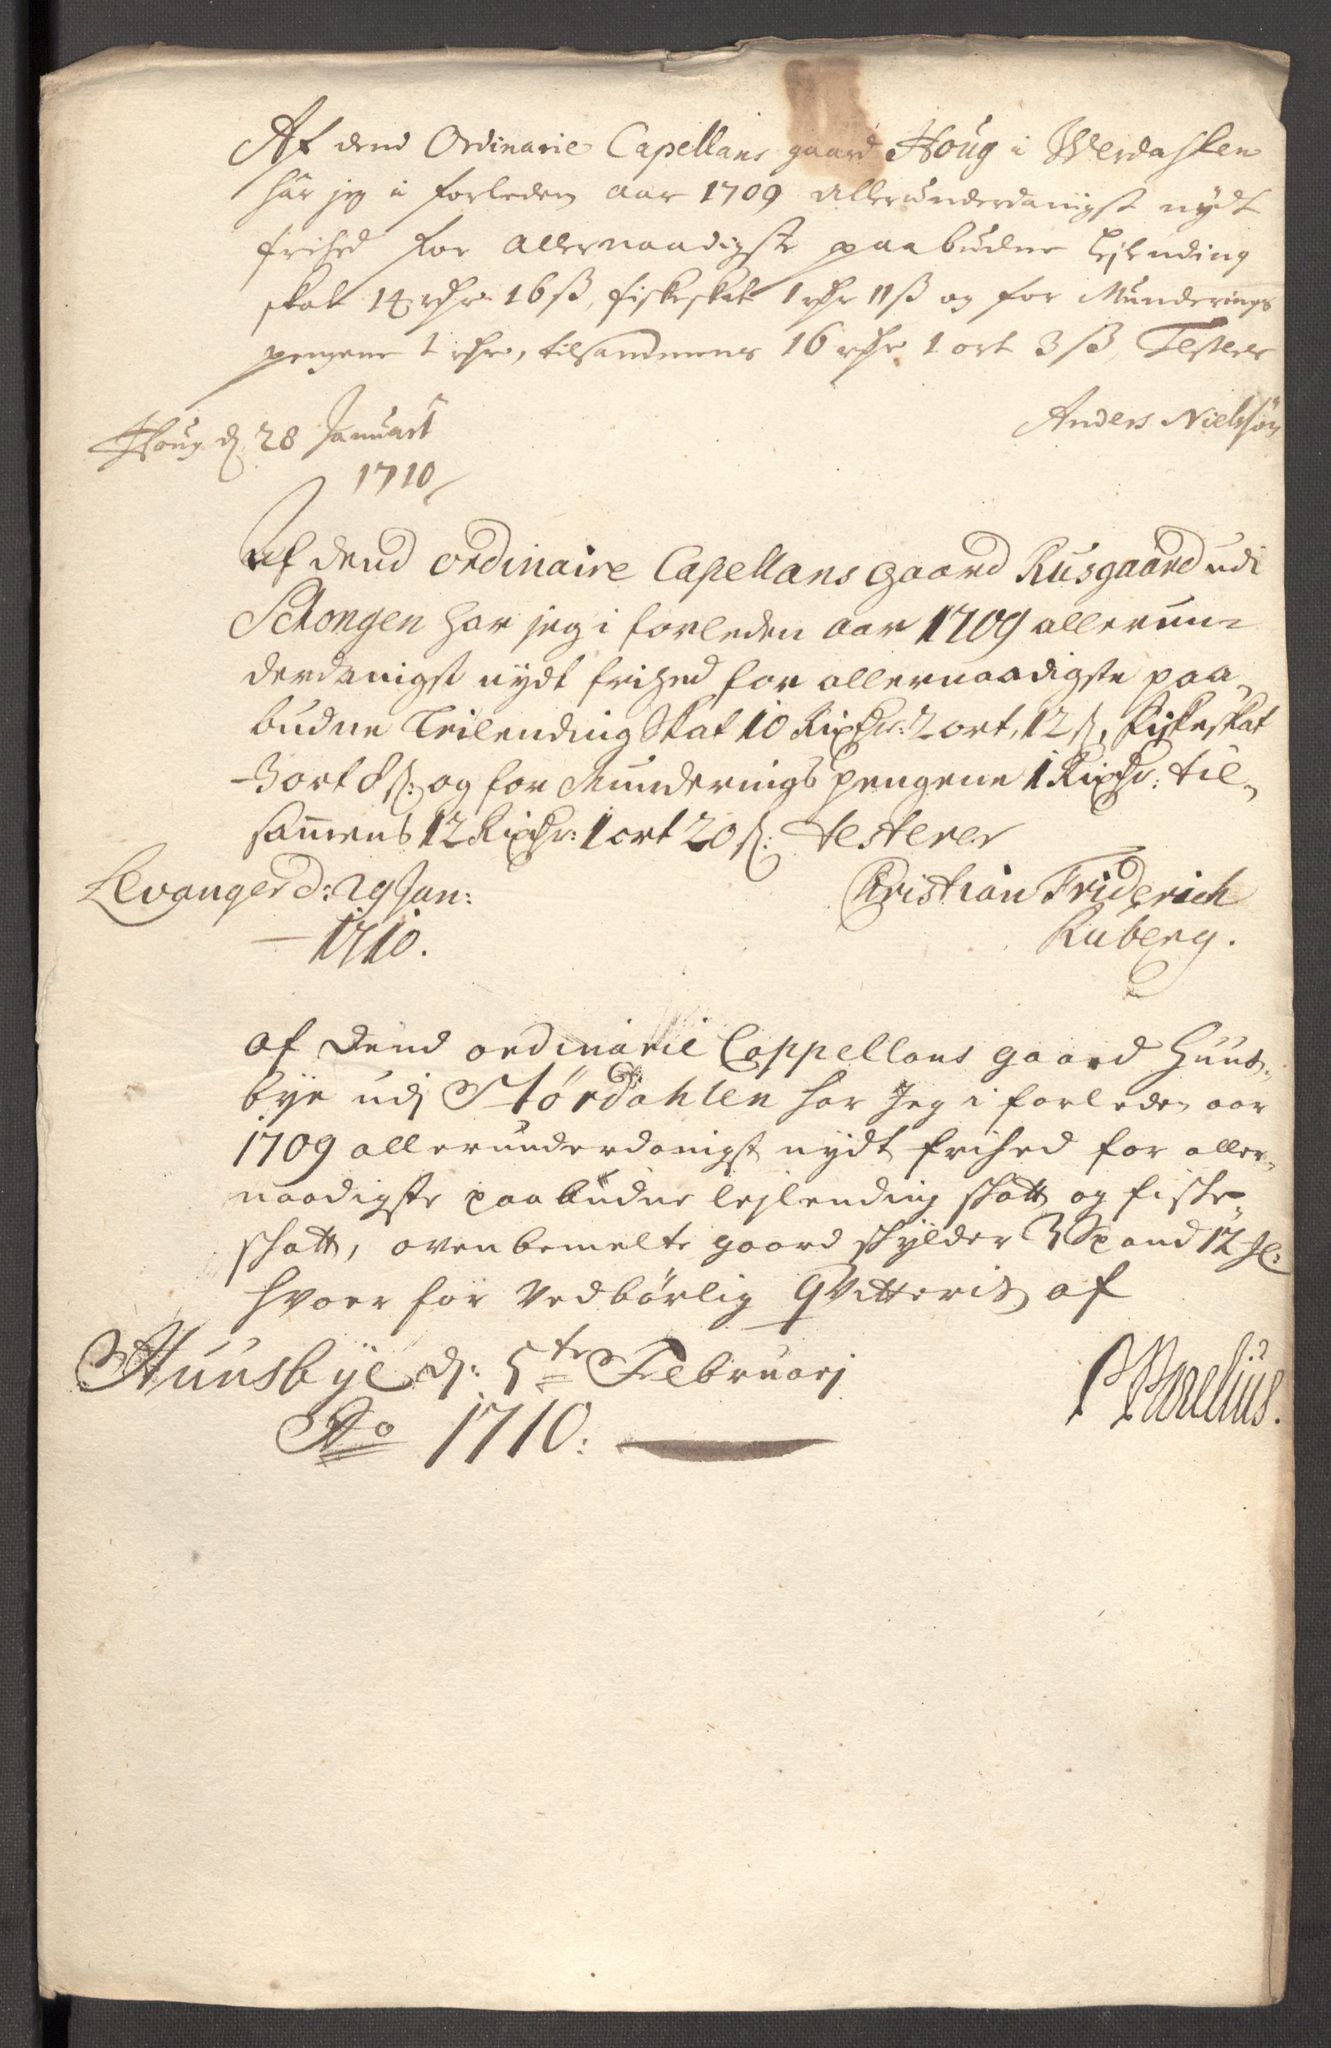 Af dend Ordinarie Capellans gaard Houg i Werdahlen
har jeg i forleden aar 1709 allerunderdanigst nydt
frihed for allernaadigste paabudne lejlending
skat 14 rdr 16 ß, fiskeskat 1 rdr 11 ß og for Munderings
pengene 1 rdr, tilsammens 16 rdr 1 ort 3 ß, Testerer
Anders Nielssøn
Houg d. 28 Januarii
1710
Af dend ordinaire Capellans gaard Rusgaard udi
Schongen har jeg i forleden aar 1709 allerun-
derdanigst nydt frihed for allernaadigste paa-
budne Leilending Skat 10 Rixdr: 2 ort, 12 ß, fiskeskat
3 ort 8 ß: og for Munderings pengene 1 Rixdr: til-
sammens 12 Rixdr: 1 ort 20 ß: testerer
Levanger d: 29 Jan:
1710.
Christian Friderich
Ruberg.
af Dend ordinarie Cappellans gaard Huus-
bye udj Størdahlen har Jeg i forleden aar
1709 allerunderdanigst nydt frihed for aller-
naadigste paabudne lejlending skatt og fiske-
skatt, ovenbemelte gaard skylder 3 Spand 12 
hvor for vedbørlig qvitteris af
Huusbye d: 5te Februarj
Ao 1710: